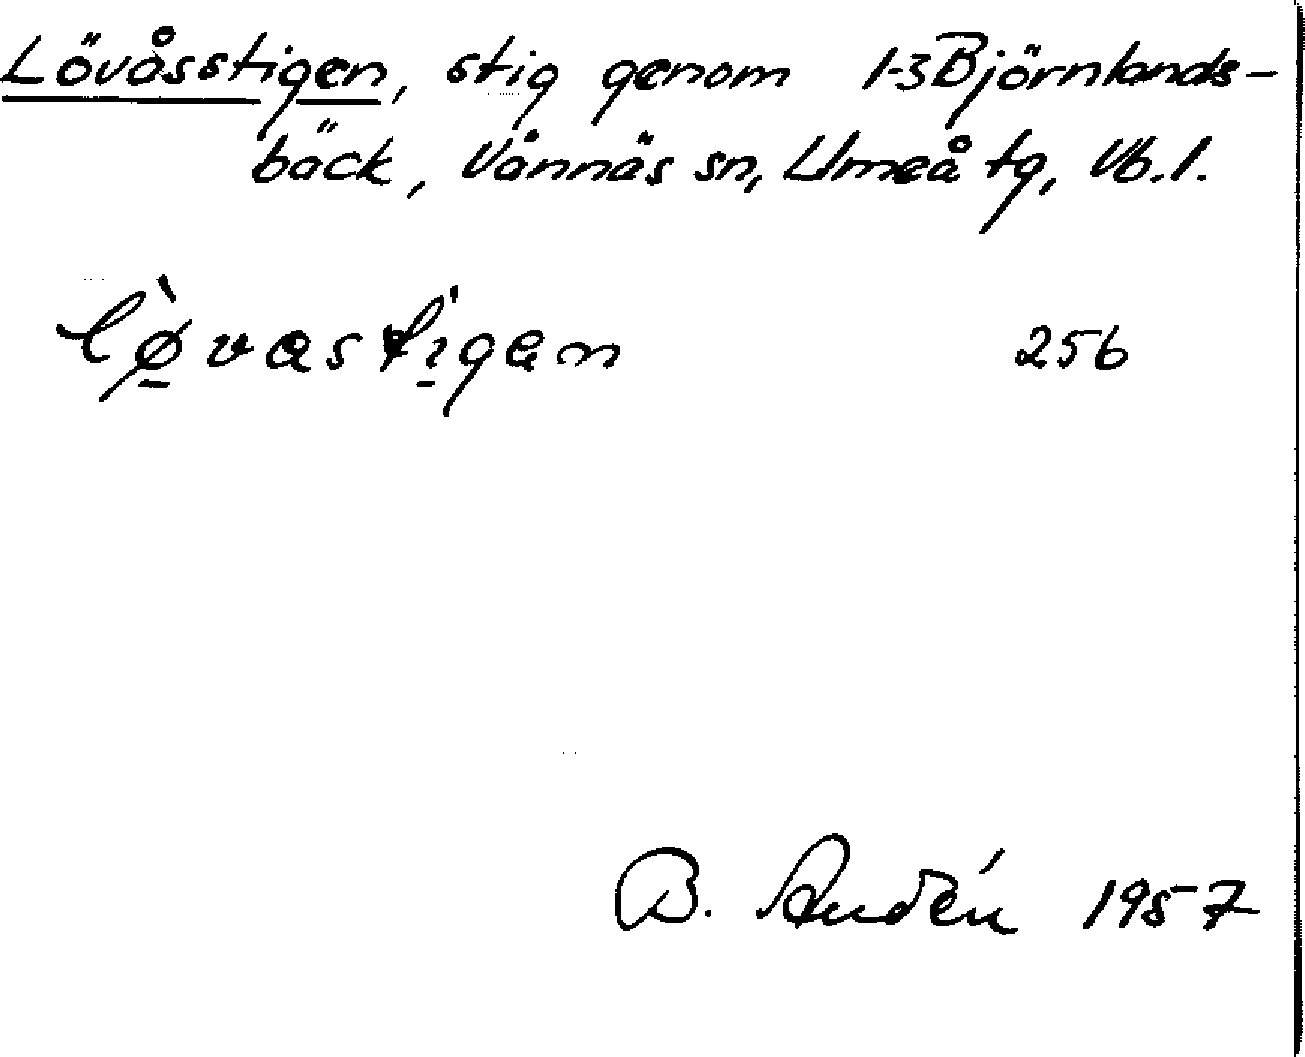 Lövåsstigen, stig genom 1-3 Björnlands-
bäck, Vännäs sn, Umeå tg, Vb. l.
lø̠̀vastı̠gen 256
B. Audén 1957